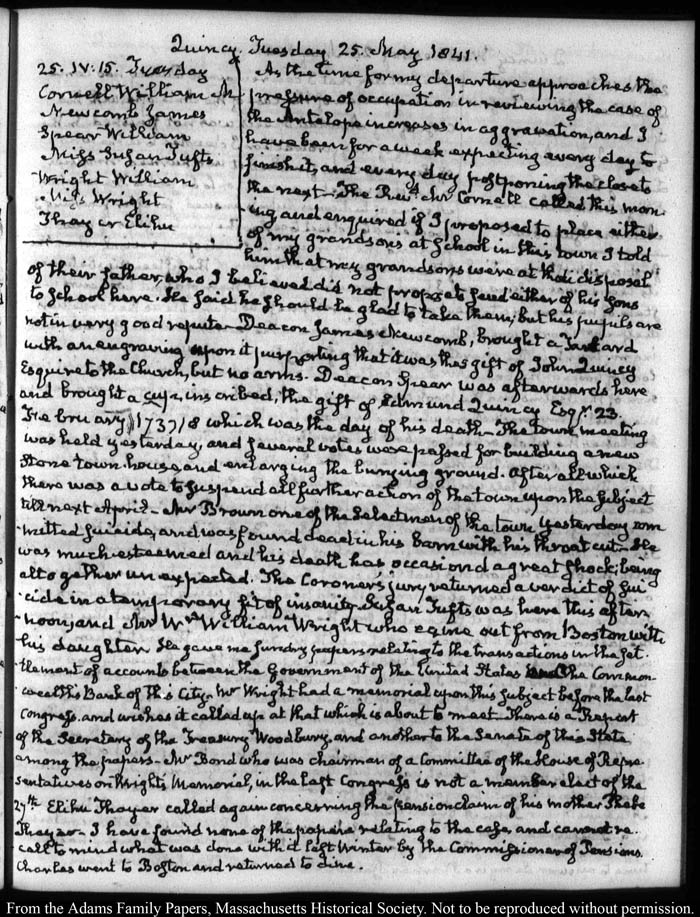 Quincy. Tuesday 25. May 1841.
25. IV:15. Tuesday
Cornell William M
Newcomb James
Spear William
Miss Susan Tufts
Wright William
Miss Wright
Thayer Elihu
As the time for my departure approaches the
pressure of occupation in reviewing the case of
the Antelope increases in aggravation, and I
have been for a week expecting every day to
finish it, and every day postponing the close to
the next— The Revd. Mr Cornell called this morn-
ing and enquired if I proposed to place either
of my grandsons at School in this town I told
him that my grandsons were at the disposal
of their father, who I believed did not propose to send either of his Sons
to School here. He said he should be glad to take them; but his pupils are
not in very good repute— Deacon James Newcomb, brought a Tankard
with an engraving upon it purporting that it was the gift of John Quincy
Esquire to the Church, but no arms. Deacon Spear was afterwards here
and brought a cup, inscribed, the gift of Edmund Quincy Esqr. 23
February 1737/8 which was the day of his death— The town meeting
was held yesterday, and several votes were passed for building a new
Stone town-house, and enlarging the burying ground. After all which
there was a vote to suspend all further action of the town upon the subject
till next April— Mr Brown one of the Selectmen of the town yesterday com-
mitted suicide, and was found dead in his barn with his throat cut— He
was much esteemed and his death has occasiond a great shock; being
altogether unexpected. The Coroner's jury returned a verdict of sui-
cide in a temporary fit of insanity. Susan Tufts was here this after-
noon, and Mr Wm William Wright who came out from Boston with
his daughter. He gave me sundry papers relating to the transactions in the set-
tlement of accounts between the Government of the United States and the Common-
wealth's Bank of this City. Mr Wright had a memorial upon this subject before the last
Congress. and wishes it called up at that which is about to meet— There is a Report
of the Secretary of the Treasury Woodbury, and another to the Senate of this State
among the papers— Mr Bond who was chairman of a Committee of the House of Repre-
sentatives on Wright's Memorial, in the last Congress is not a member elect of the
27th. Elihu Thayer called again concerning the pension claim of his mother Phebe
Thayer— I have found none of the papers relating to the case, and cannot re-
call to mind what was done with it last Winter by the Commissioner of Pensions.
Charles went to Boston and returned to dine.
From the Adams Family Papers, Massachusetts Historical Society. Not to be reproduced without permission.